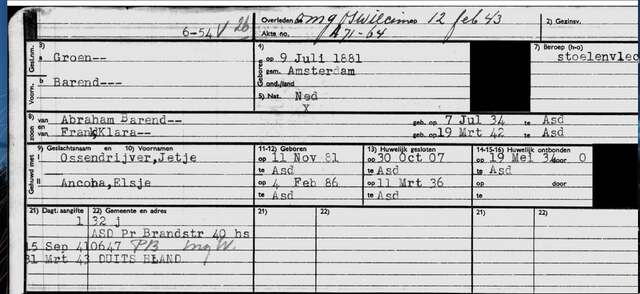 6-54 V 26 Overleden omgOSWilcim op 12 feb 43 2) Gezinsv.
Akte no. A71-64
Gesl.nm. 3) a Groen-- 4) Geboren op 9 Juli 1881 7) Beroep (h=o)
gem. Amsterdam stoelenvlec
Voorn. b Barend--- ond./land
5) Nat. Ned
X
8) zoon van Abraham Barend-- geb. op 7 Jul 34 te Asd
en van Frank Klara-- geb. op 19 Mrt 42 te Asd
Gehuwd met 9) Geslachtsnaam en 10) Voornamen 11-12) Geboren 13) Huwelijk gesloten 14-15-16) Huwelijk ontbonden
I Ossendrijver, Jetje op 11 Nov 81 op 30 Oct 07 op 19 Mei 34 door O
te Asd te Asd te Asd
II Ancoba, Elsje op 4 Feb 86 op 11 Mrt 36 op door
te Asd te Asd te
21) Dagt. aangifte 22) Gemeente en adres 21) 22) 21) 22)
1 32 j
ASD Pr Brandstr 40 hs
15 Sep 41 0647 PB
31 Mrt 43 DUITSHLAND